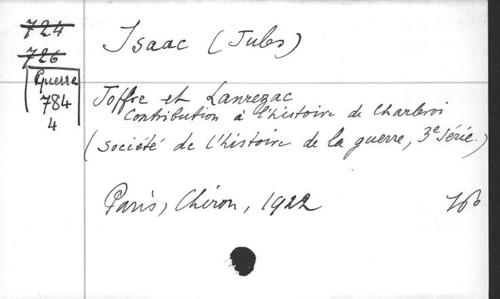 724
726
Guerre
784
4
Isaac (Jules)
Joffre et Lanrezac
Contribution à l'histoire de Charleroi
(Société de l'histoire de la guerre, 3e série.)
Paris, Chiron, 1922